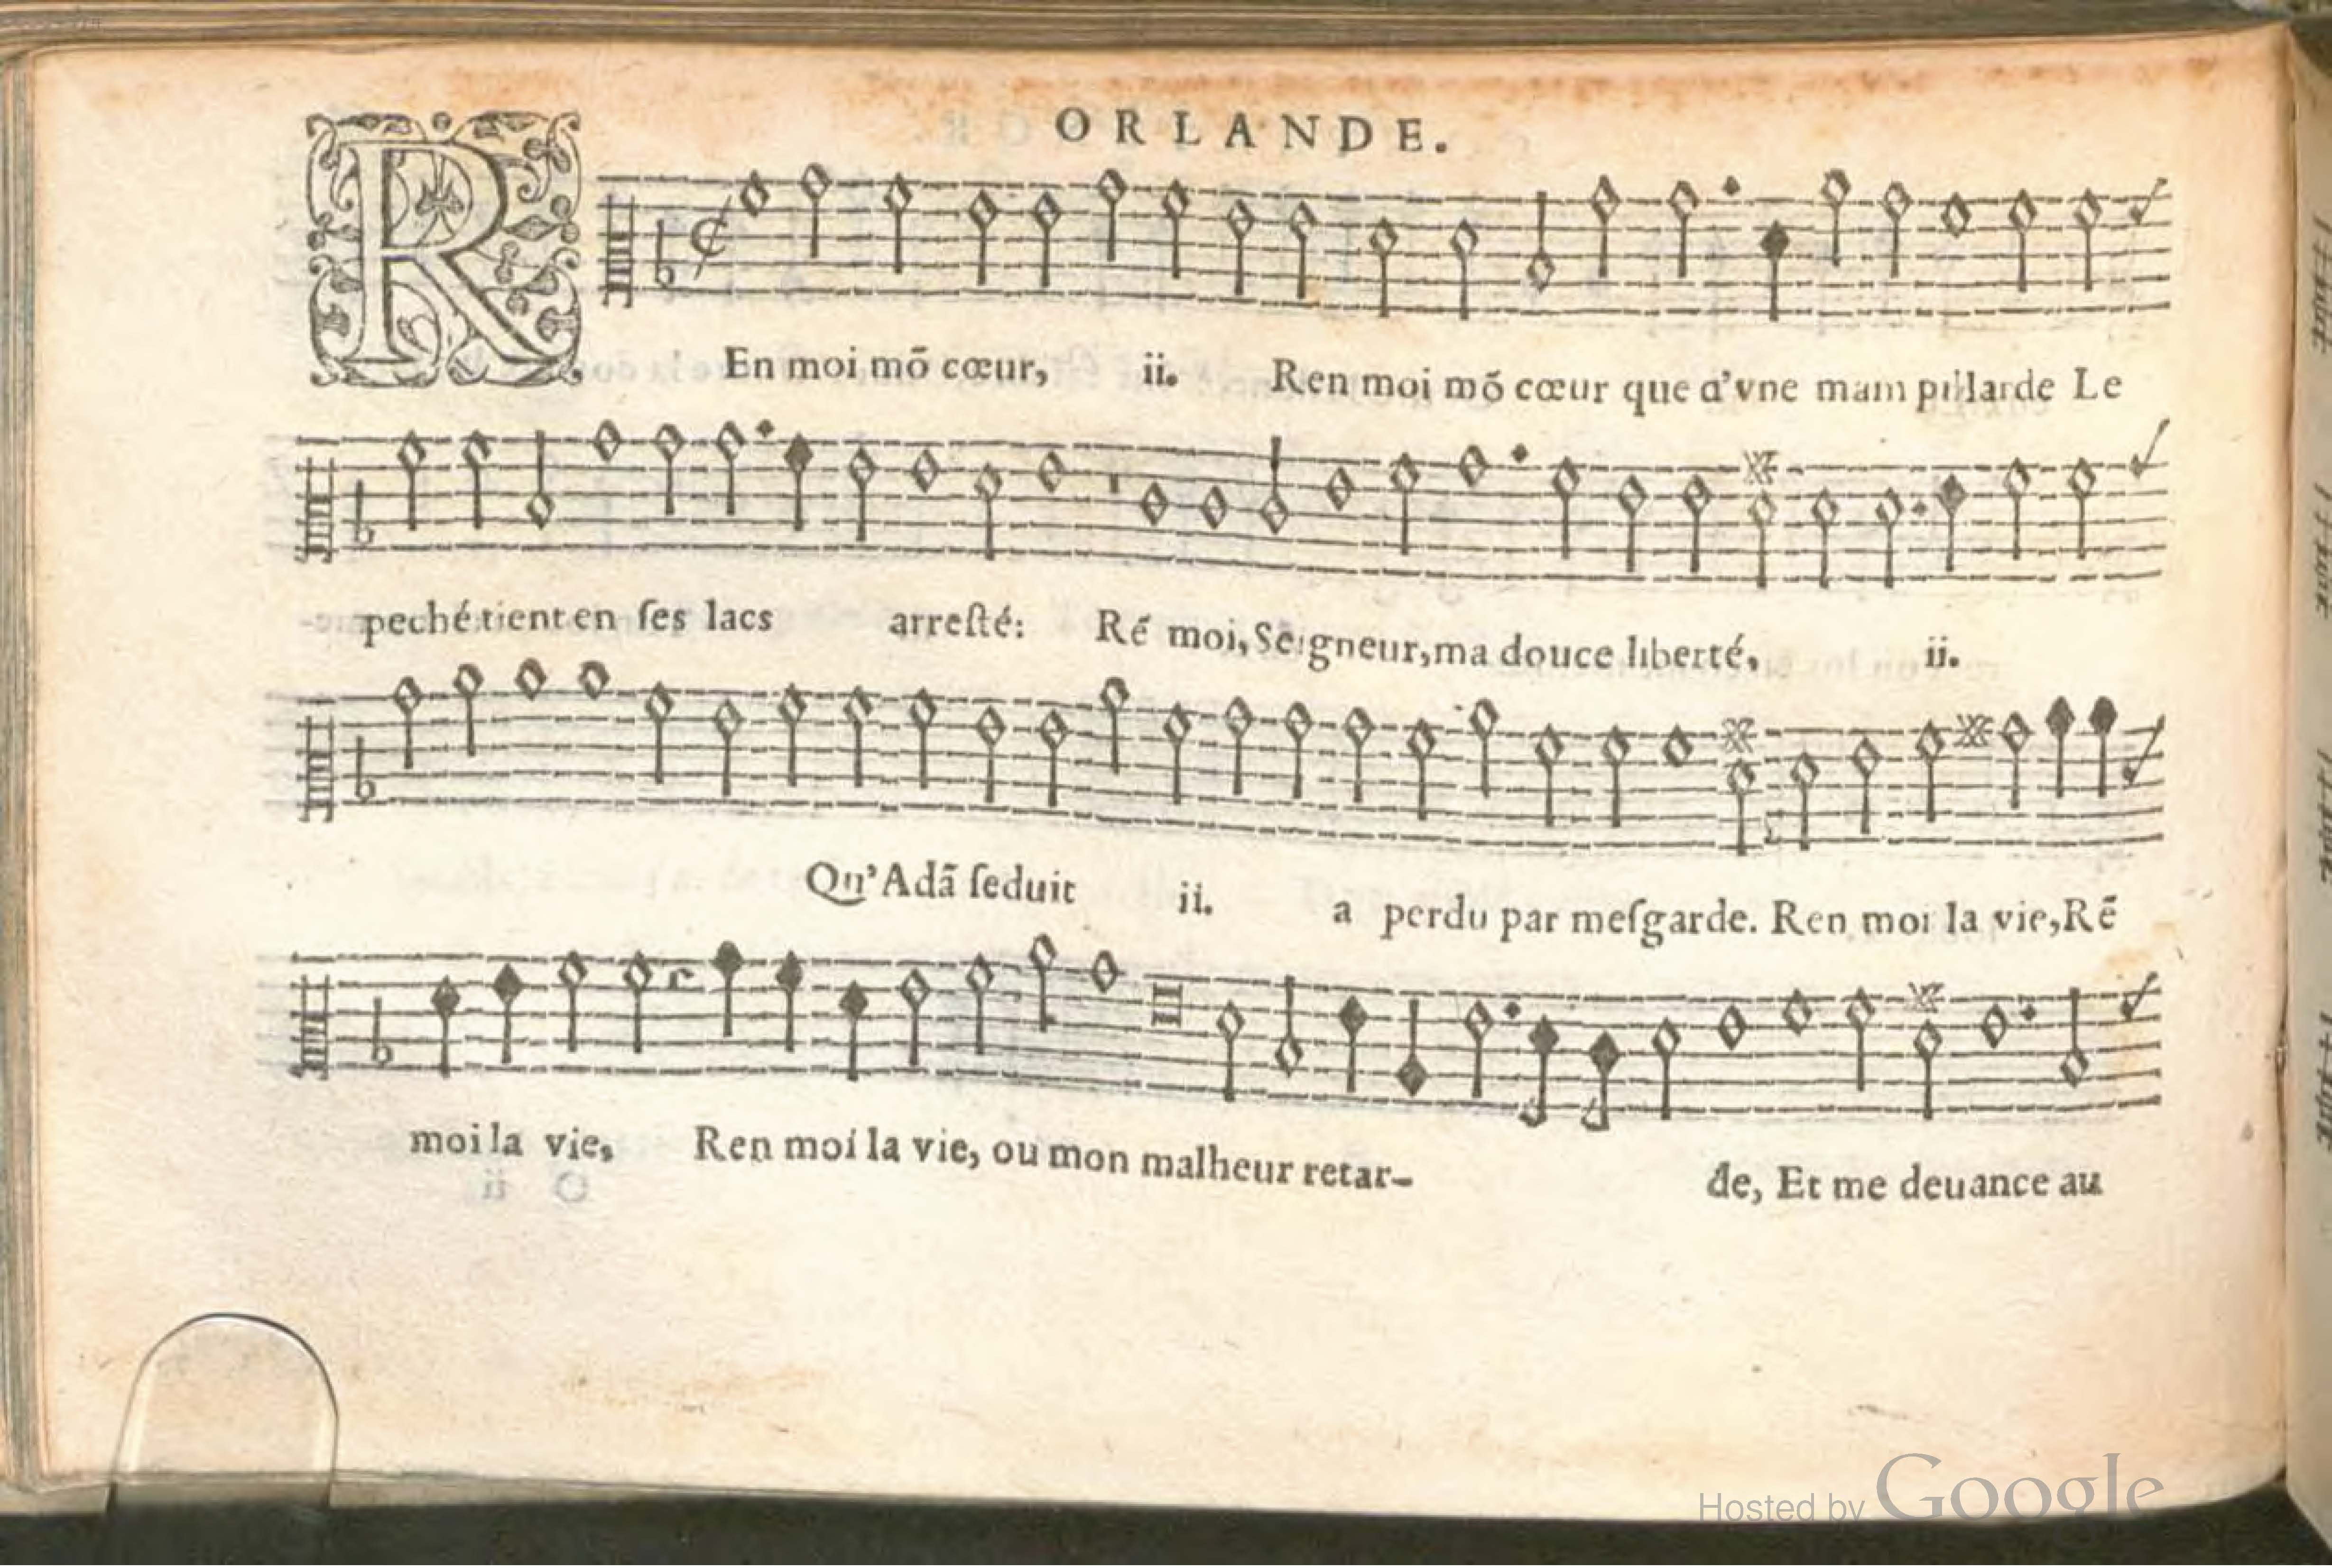 ORLANDE.
REn moi mõ cœur, ii. Ren moi mõ cœur que d'vne main pillarde Le
peché tient en ſes lacs arreſté: Ré moi, Seigneur, ma douce liberté, ii.
Qu'Adã ſeduit ii. a perdu par meſgarde. Ren moi la vie, Rẽ
moi la vie, Ren moi la vie, ou mon malheur retar-
de, Et me deuance au
Hosted by Google